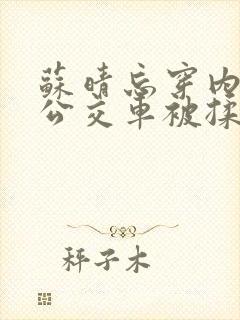 蘇晴忘穿内
公交車被揉
秤子木